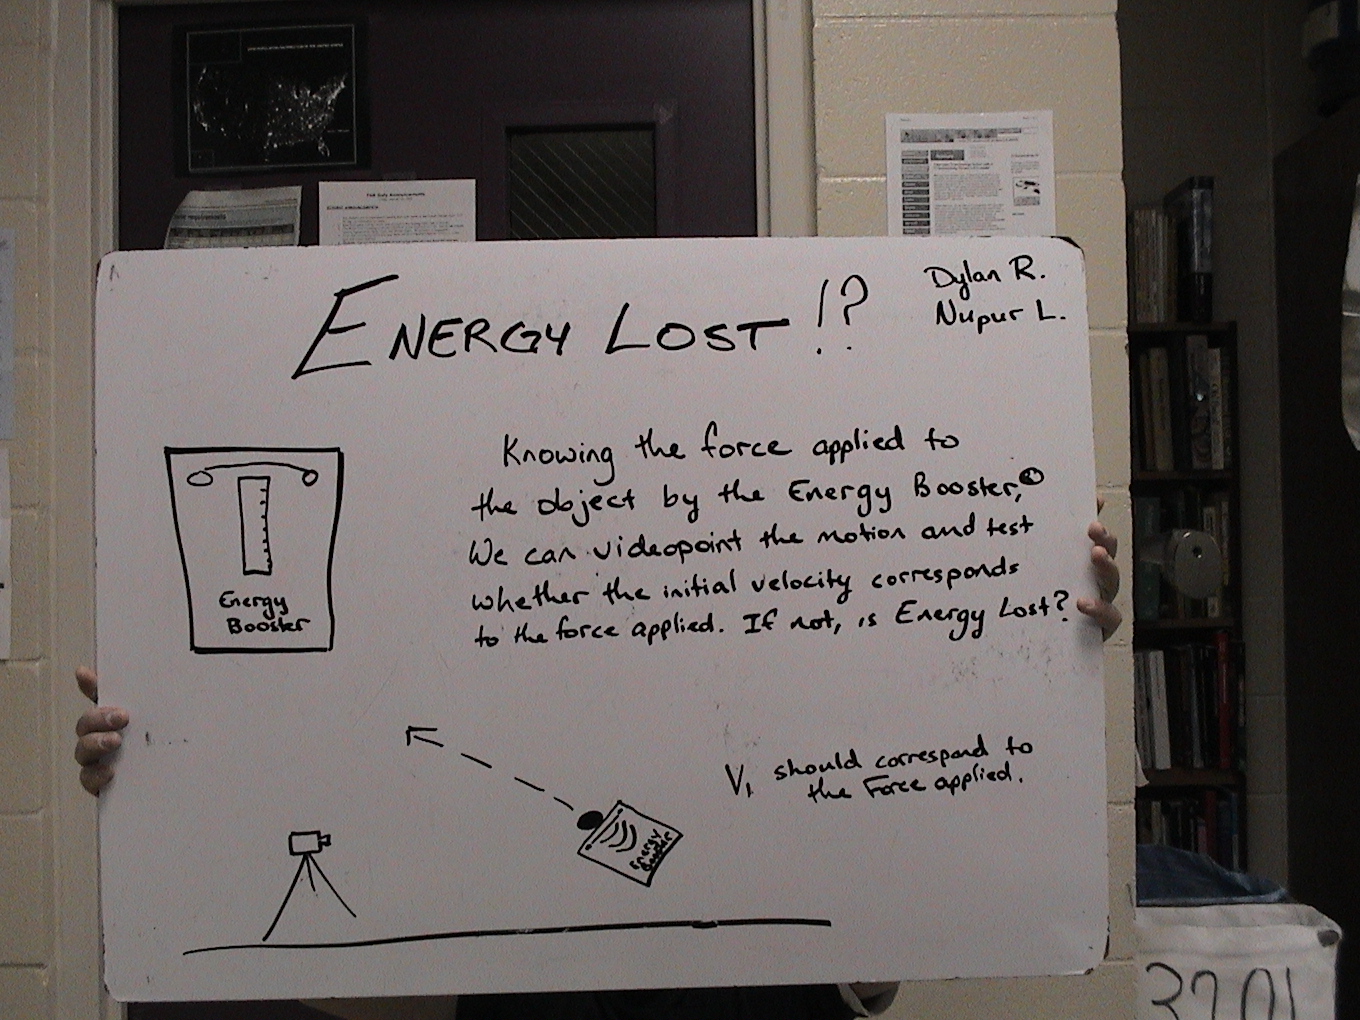 ENERGY LOST!?
Dylan R.
Nupur L.
Knowing the force applied to
the object by the Energy Booster,
We can videopoint the motion and test
whether the initial velocity corresponds
to the force applied. If not, is Energy Lost?
Energy
Booster
V₁ should correspond to
the Force applied.
Energy
Booster
3201